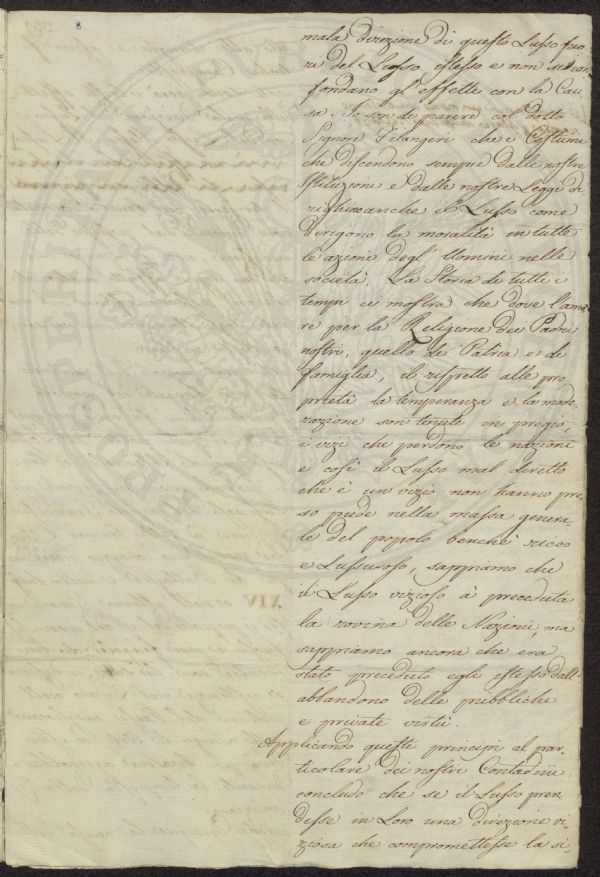 8
mala direzione di questo Lusso fuo
ri del Lusso istesso e non si con
fondano gl'effetti con la Cau
sa. Io son di parere col dotto
Signore Filangeri che i Costumi
che discendono sempre dalle nostre
Istituzioni e dalle nostre Leggi di
righino anche il Lusso come
dirigono la moralità in tutte
le azioni degl'Uomini nelle
società. La Storia di tutti i
tempi ci mostra che dove l'amo
re per la Religione dei Padri
nostri, quello di Patria e di
famiglia, il rispetto alle pro
prietà la temperanza e la mode
razione son tenute in pregio,
i vizi che perdono le nazioni
e così il Lusso mal diretto
che è un vizio non hanno pre
so piede nella massa genera
le del popolo benchè ricco
e Lussuroso, sappiamo che
il Lusso vizioso à preceduta
la rovina delle Nazioni, ma
sappiamo ancora che era
stato preceduto egli istesso dall'
abbandono delle pubbliche
e private virtù.
Applicando questi principi al par
ticolare dei nostri Contadini
concludo che se il Lusso pren
desse in Loro una direzione vi
ziosa che compromettesse la si-